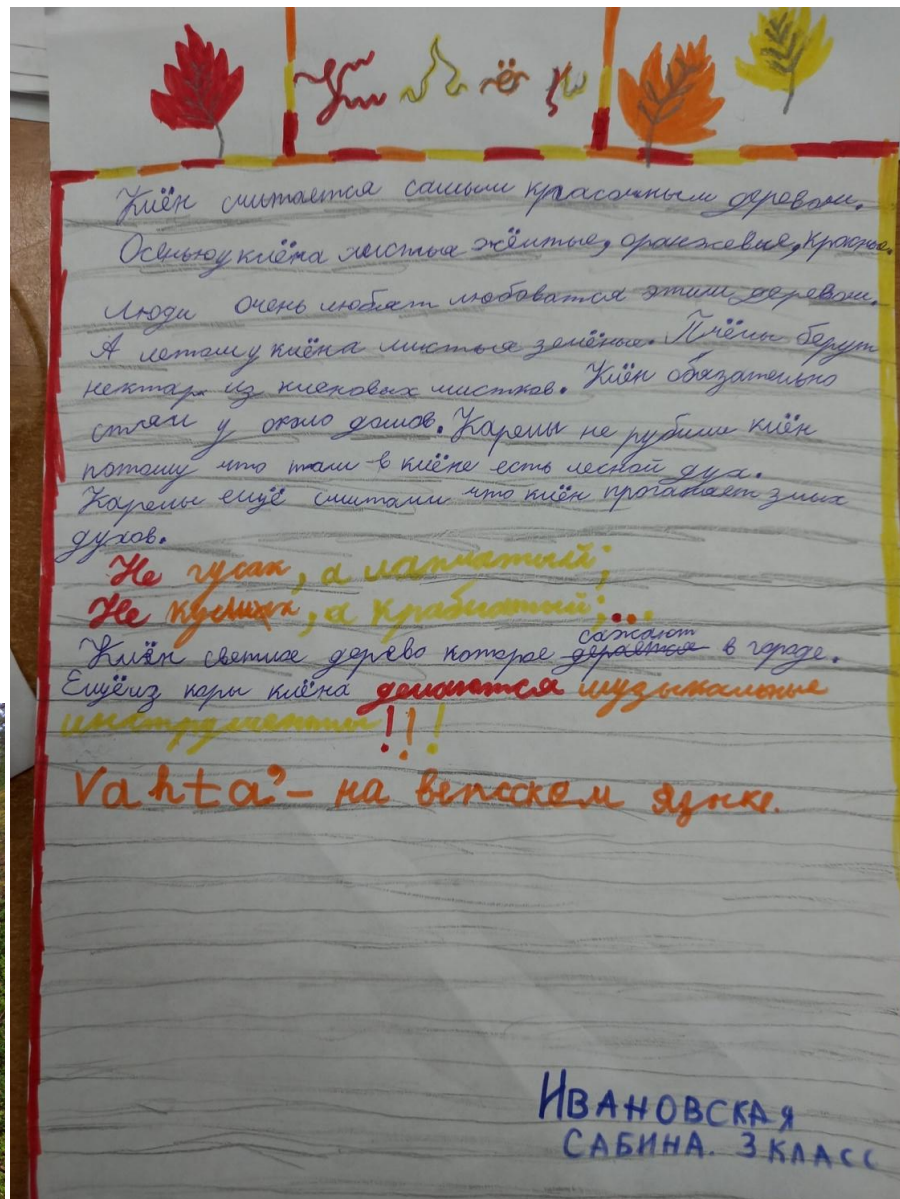 Клён
Клён считается самым красочным деревом.
Осенью у клёна листья жёлтые, оранжевые, красные.
Люди очень любят любоватся этим деревом.
А летом у клёна листья зелёные. Пчёлы берут
нектар из кленовых листков. Клён обязательно
стоял у около домов. Карелы не рубили клён
потому что там в клёне есть лесной дух.
Карелы ещё считали что клён прогоняет злых
духов.
Не гусак, а лапчатый;
Не кушак, а крабчатый;...
сажают
Клён светлое дерево которое в городе.
Ещё из коры клёна делаются музыкальные
инструменты!!!
Vahta’ – на вепсском языке.
Ивановская
Сабина. 3 класс